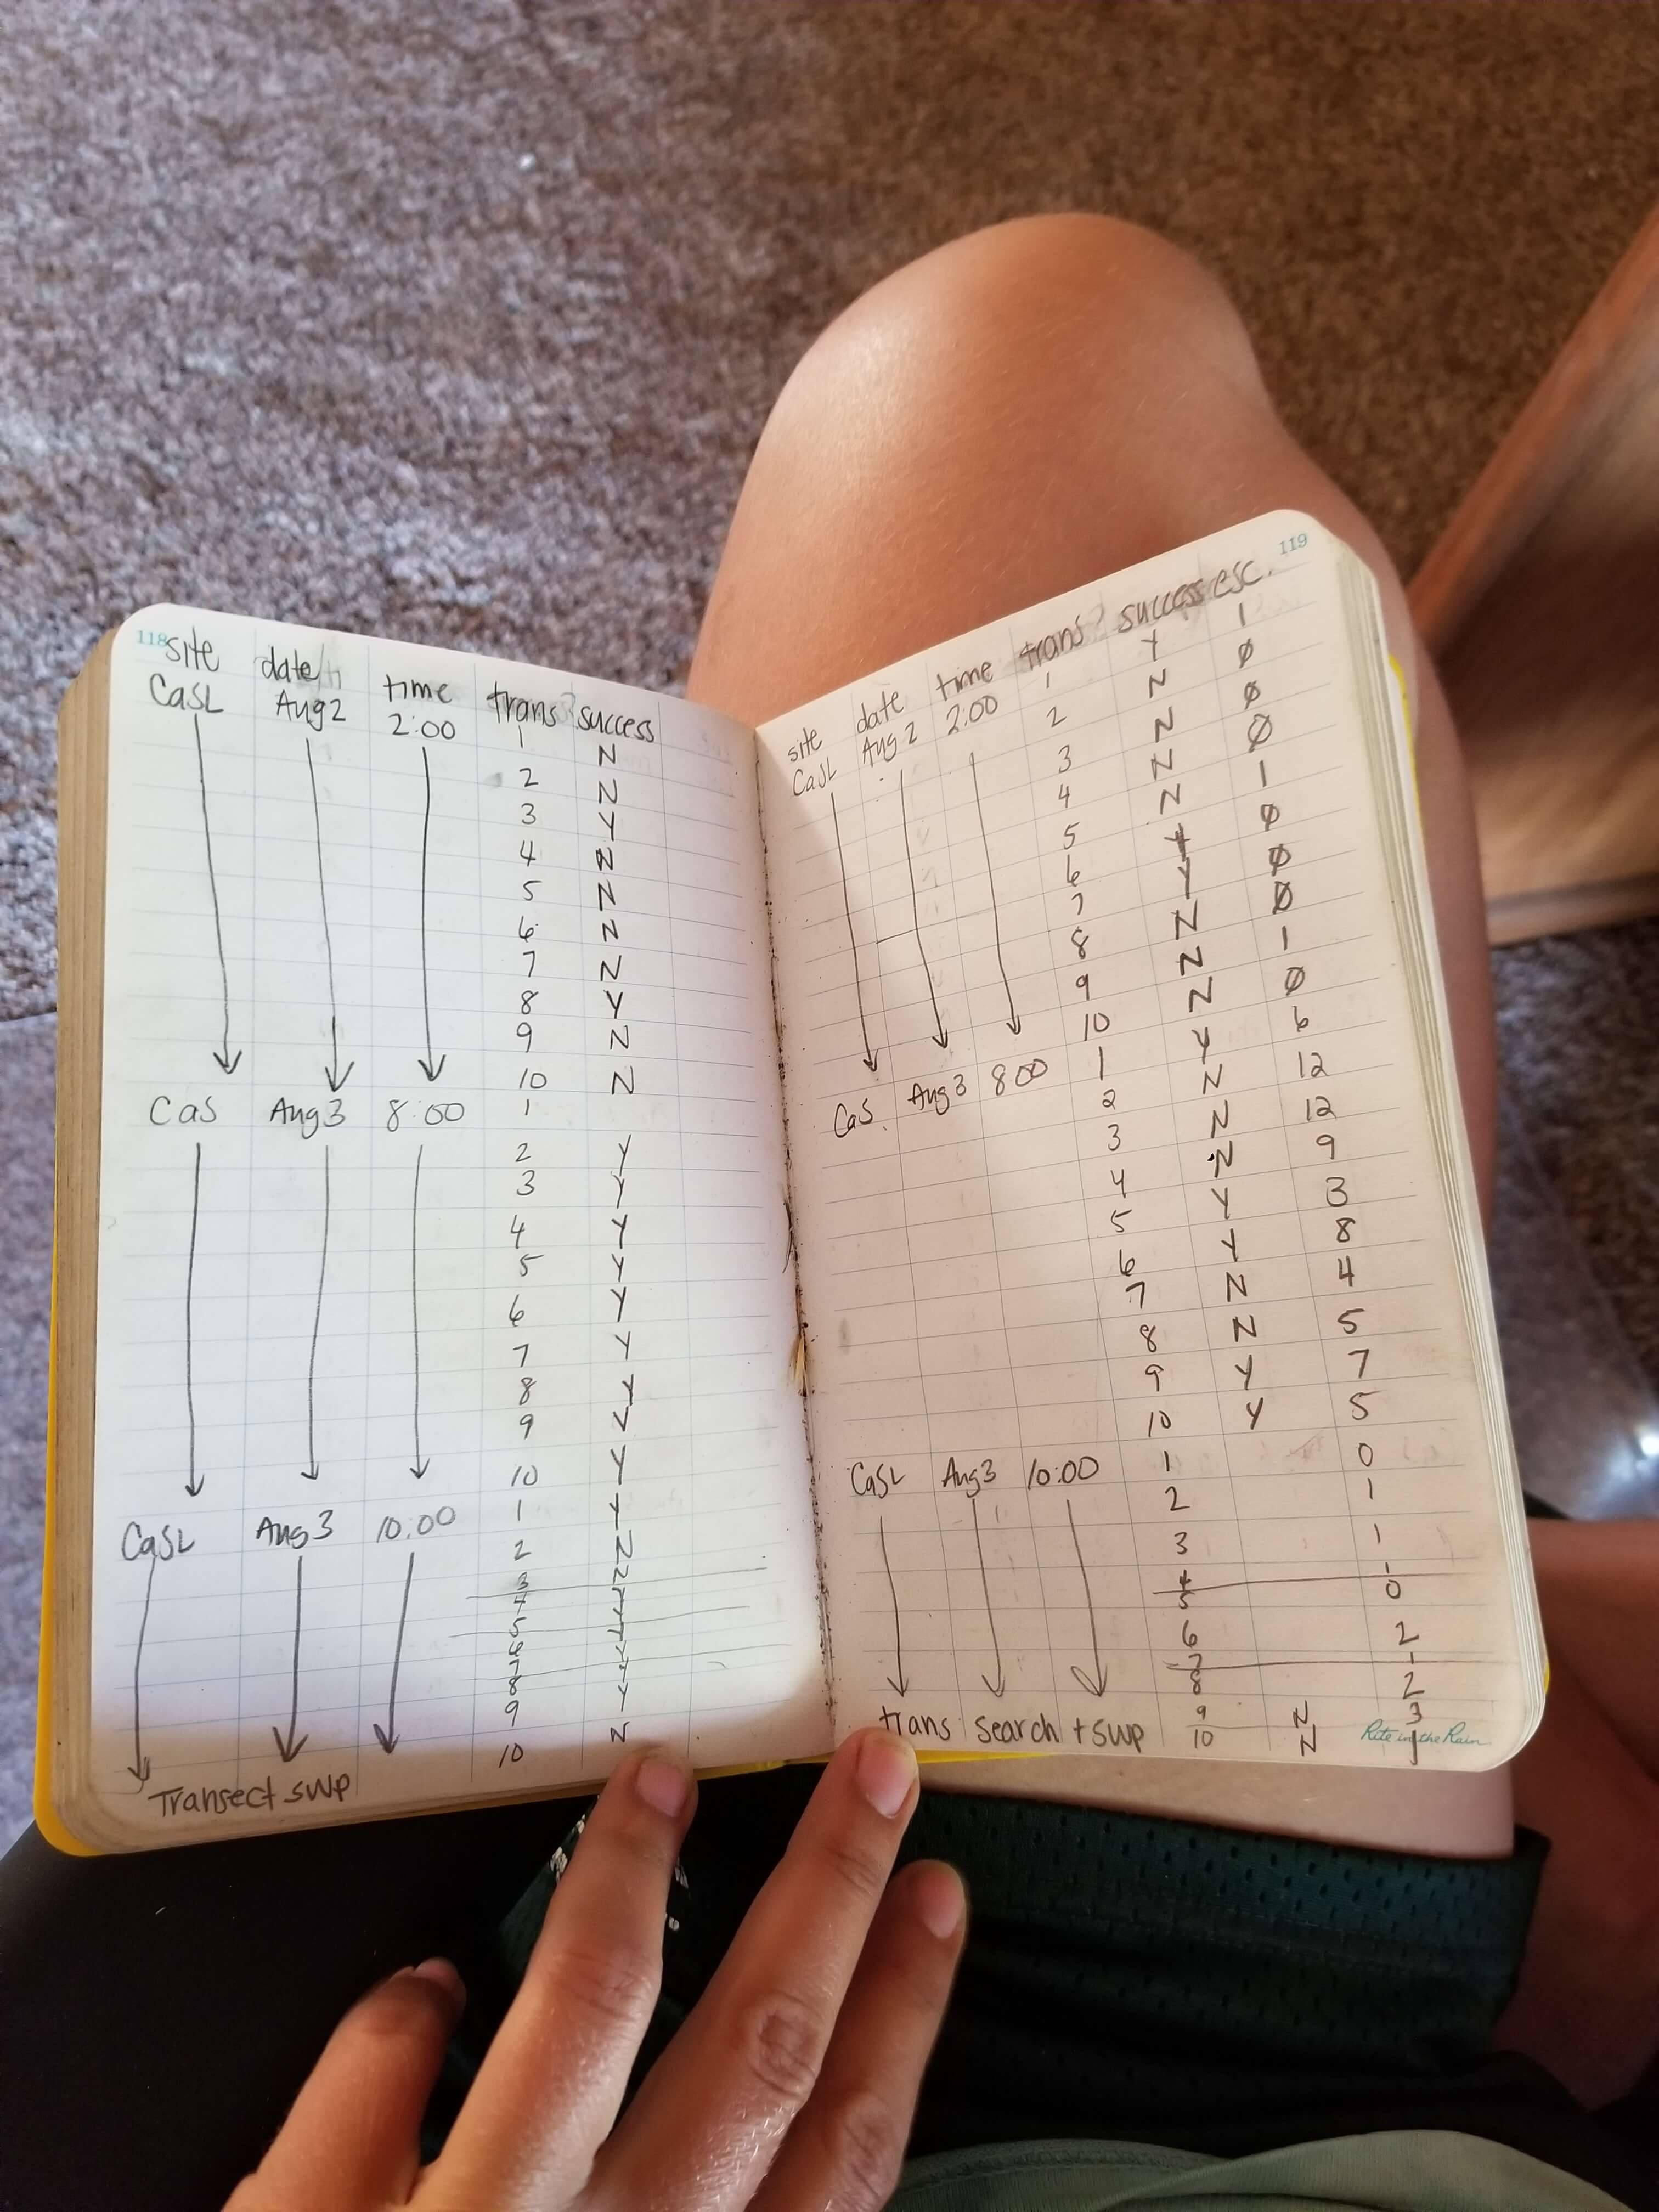 118
site date time trans success
CaSL Aug 2 2:00 1 N
2 N
3 Y
4 N
5 N
6 N
7 N
8 Y
9 N
10 N
CaS Aug 3 8:00 1
2 Y
3 Y
4 Y
5 Y
6 Y
7 Y
8 Y
9 Y
10 Y
CaSL Aug 3 10:00 1 Y
2 N
3
4
5
6
7
8
9 Y
10 N
Transect swp
119
site date time trans success esc.
CaSL Aug 2 2:00 1 Y 1
2 N Ø
3 N Ø
4 N Ø
5 N 1
6 Ø
7 Y Ø
8 N Ø
9 N 1
10 N Ø
CaS. Aug 3 8 00 1 Y 6
2 N 12
3 N 12
4 N 9
5 Y 3
6 Y 8
7 N 4
8 N 5
9 Y 7
10 Y 5
CaSL Aug 3 10:00 1 0
2 1
3 1
4
5 0
6 2
7
8 2
9 N 3
10 N 1
trans search + swp
Rite in the Rain